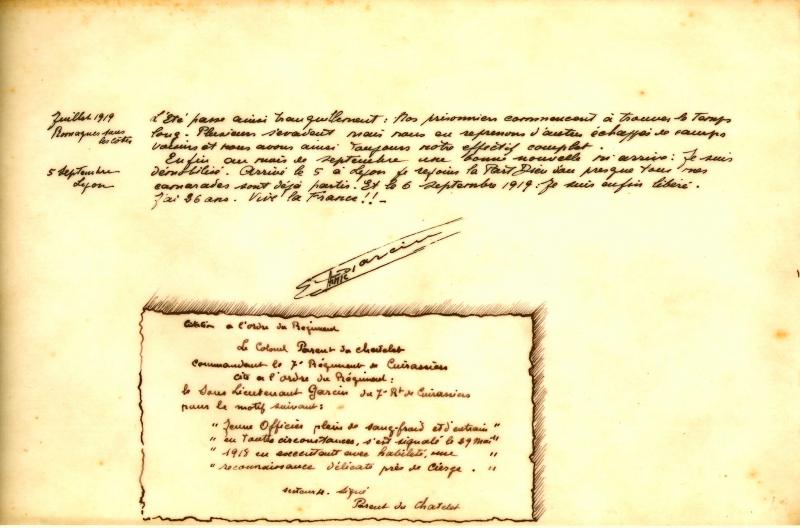 Juillet 1919
Romagnes sous
les côtes
L'Eté passe ainsi tranquillement : Nos prisonniers commencent à trouver le temps
long. Plusieurs s'évadent mais nous en reprenons d'autres échappés de camps
voisins et nous avons ainsi toujours notre effectif complet.
Enfin au mois de septembre une bonne nouvelle m'arrive : Je suis
5 Septembre
Lyon
démobilisé. Arrivé le 5 à Lyon je rejoins la Part Dieu d'où presque tous mes
camarades sont déjà partis. Et le 6 septembre 1919. Je suis enfin libéré.
J'ai 26 ans. Vive la France !! _
Garcin
Citation à l'ordre du Régiment
Le Colonel Parent du Chatelet
Commandant le 7e Régiment de Cuirassiers
Cite à l'ordre du Régiment :
le Sous Lieutenant Garcin du 7e Rt de Cuirassiers
pour le motif suivant :
" Jeune Officier plein de sang-froid et d'entrain "
" en toutes circonstances, s'est signalé le 29 Mai "
" 1918 en exécutant avec habileté, une "
" reconnaissance délicate près de Cierge. "
Signé
Parent du Chatelet